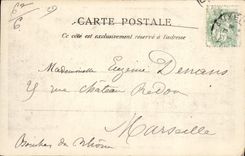 CARTE POSTALE
Ce côté est exclusivement réservé à l'adresse
Mademoiselle Eugénie
rue Château Redon
Marseille
Bouches du Rhône